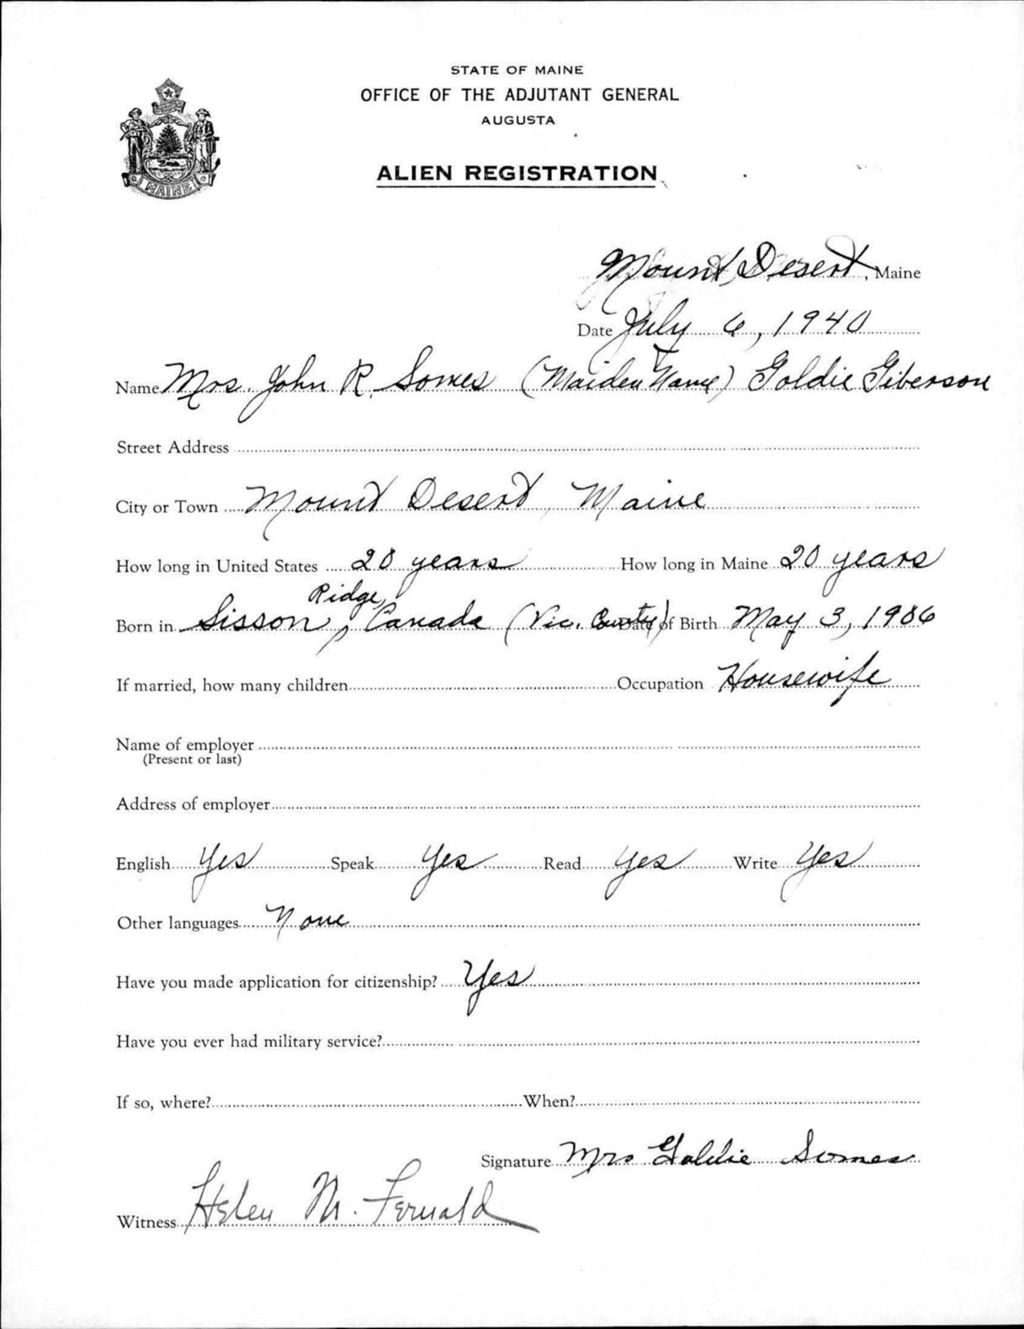 STATE OF MAINE
OFFICE OF THE ADJUTANT GENERAL
AUGUSTA
ALIEN REGISTRATION
MAINE
Mount Desert, Maine
Date July 6, 1940
Name Mrs. John R. Somes (Maiden Name) Goldie Giberson
Street Address
City or Town Mount Desert, Maine
How long in United States 20 years How long in Maine 20 years
Ridge,
Born in Sisson, Canada (Vic. County) Date of Birth May 3, 1906
If married, how many children Occupation Housewife
Name of employer
(Present or last)
Address of employer
English Yes Speak Yes Read Yes Write Yes
Other languages None
Have you made application for citizenship? Yes
Have you ever had military service?
If so, where? When?
Signature Mrs Goldie Somes
Witness Helen M. Fernald